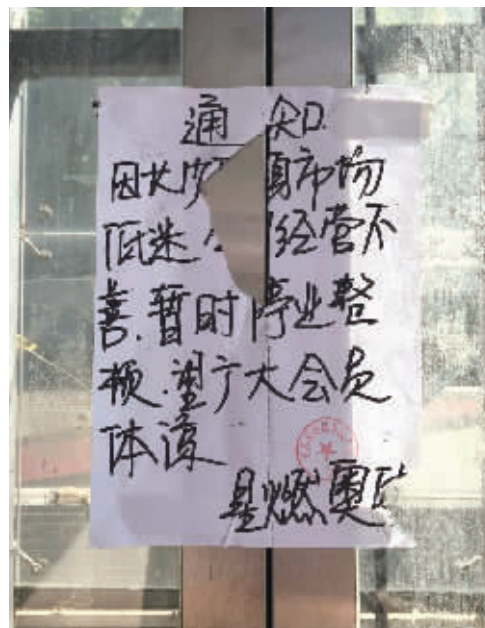 通知
因长 市场
低迷 经营不
善.暂时停业整
顿.望广大会员
体谅
星燃奥